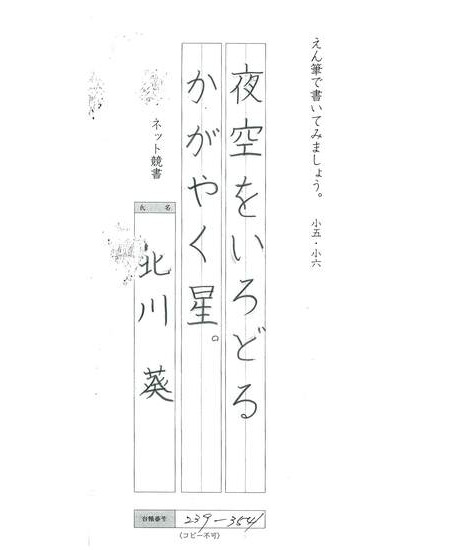 えん筆で書いてみましょう。　小五・小六
夜空をいろどる
かがやく星。
ネット競書
氏名
北川　葵
台帳番号
239-354
(コピー不可)